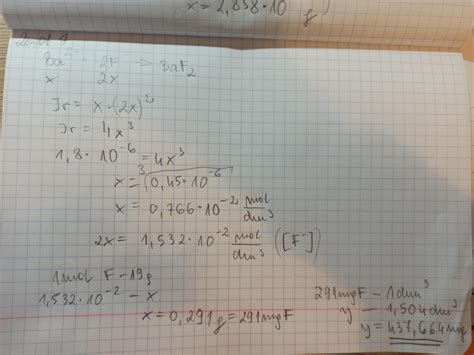 x = 2,838 · 10 g
Zad 9
Ba 2F -> BaF₂
x 2x
Ir = x · (2x)²
Ir = 4x³
1,8 · 10⁻⁶ = 4x³
x = ³√0,45 · 10⁻⁶
x = 0,766 · 10⁻² mol/dm³
2x = 1,532 · 10⁻² mol/dm³ ([F⁻])
1 mol F - 19g
1,532 · 10⁻² - x
x = 0,291g = 291mgF
291mgF - 1dm³
y - 1,504dm³
y = 437,664mg